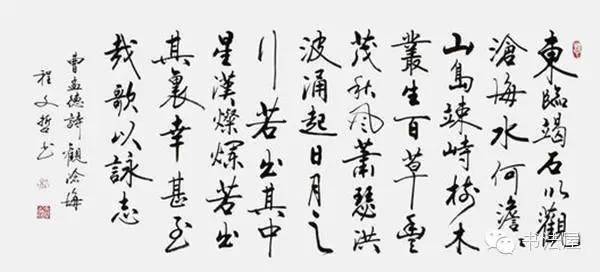 東臨竭石以觀
滄海水何澹〻
山島竦峙樹木
叢生百草豐
茂秋風蕭瑟洪
波涌起日月之
行若出其中
星漢燦爛若出
其裏幸甚至
哉歌以詠志
曹孟德詩觀滄海
程文哲书
书法屋